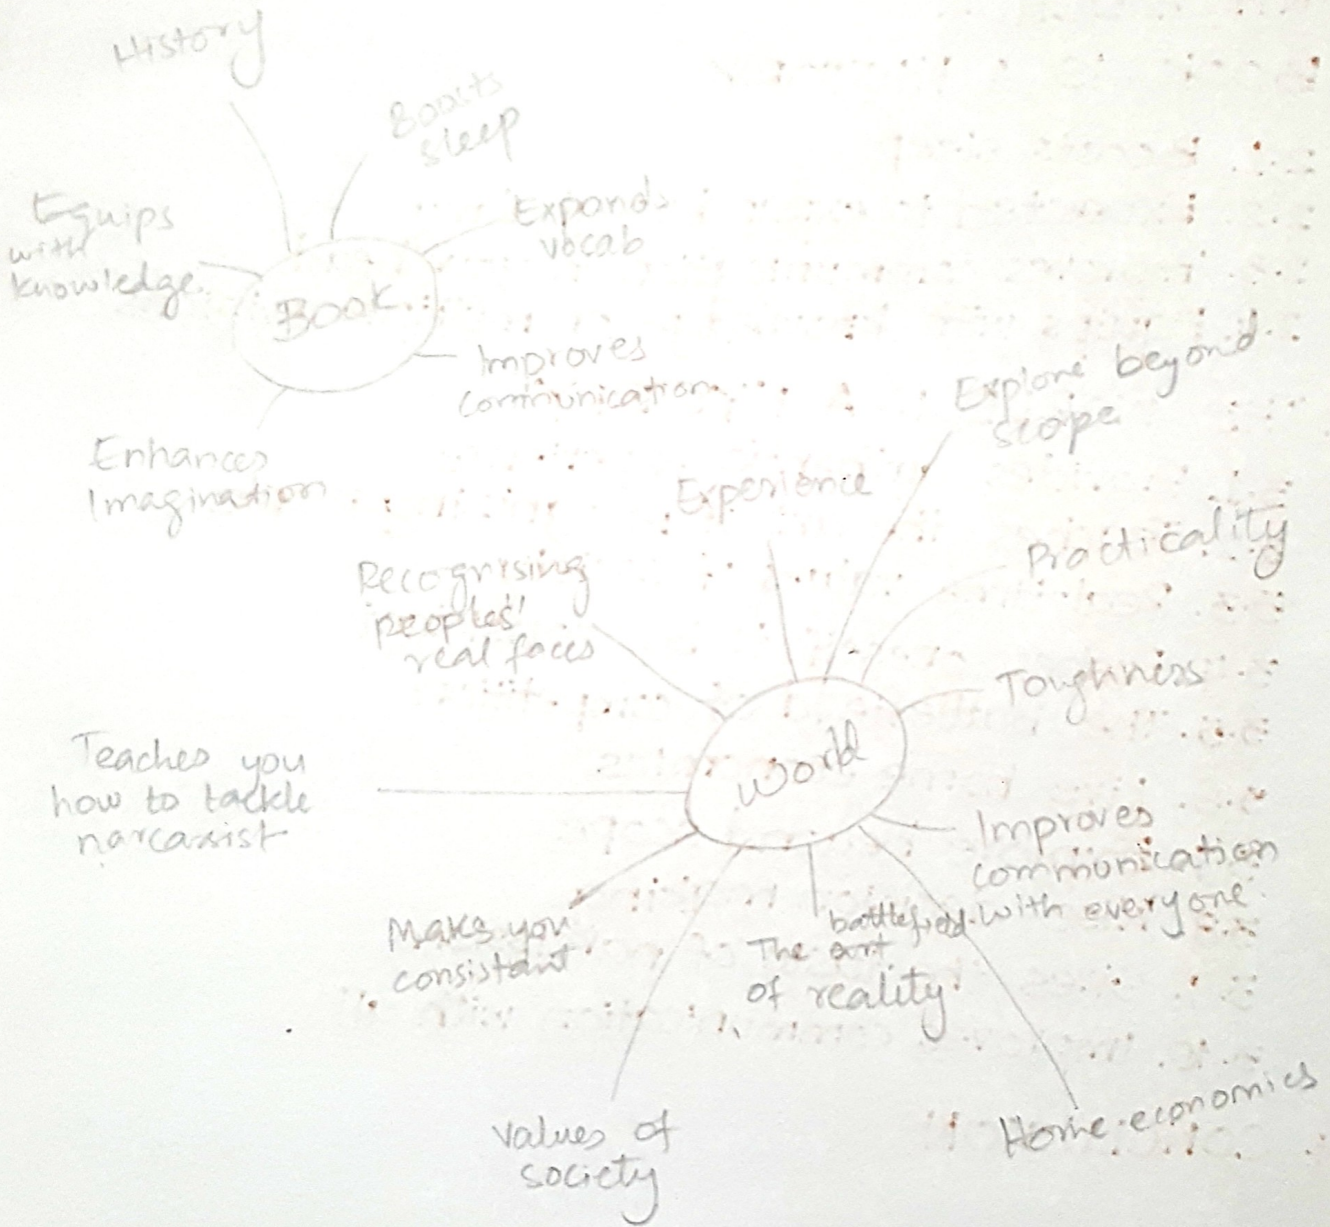 History
Boosts
sleep
Equips
with
knowledge.
Expands
vocab
Book
Improves
communication
Enhances
Imagination
Explore beyond
scope
Experience
Practicality
Recognising
peoples'
real faces
Toughness
World
Teaches you
how to tackle
narcassist
Improves
communication
with everyone
Makes you
consistant
battlefield
The art
of reality
Home economics
values of
society